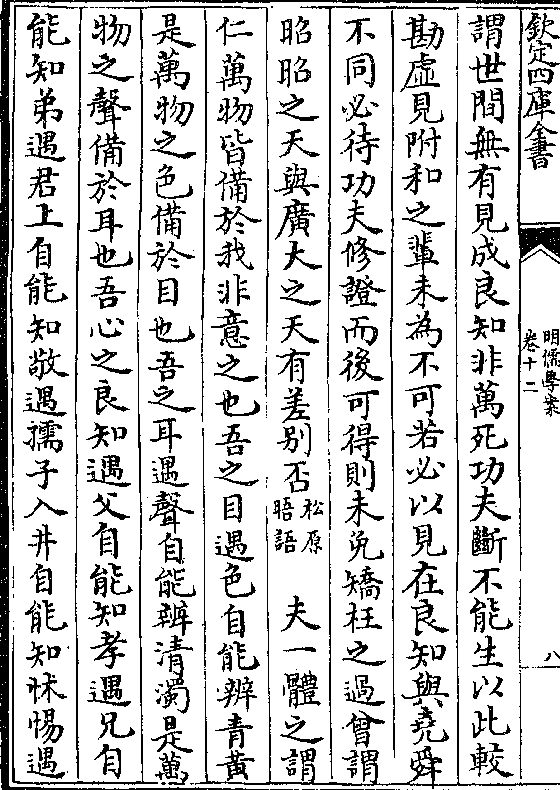 欽定四庫全書
明儒學案
卷十二
八
謂世間無有見成良知非萬死功夫斷不能生以此較
勘虛見附和之軰未為不可若必以見在良知與堯舜
不同必待功夫修證而後可得則未免矯枉之過曾謂
昭昭之天與廣大之天有差别否松原晤語 夫一體之謂
仁萬物皆備於我非意之也吾之目遇色自能辨青黄
是萬物之色備於目也吾之耳遇聲自能辨清濁是萬
物之聲備於耳也吾心之良知遇父自能知孝遇兄自
能知弟遇君上自能知敬遇孺子入井自能知怵惕遇